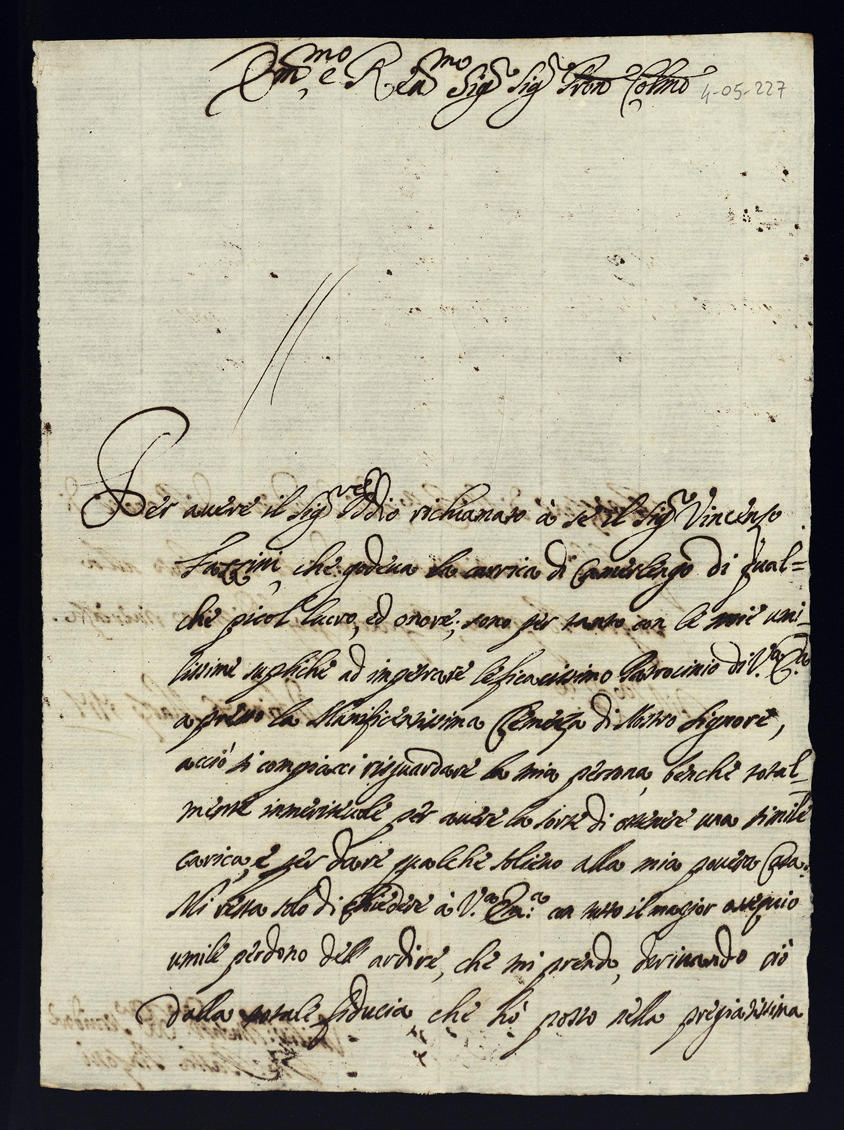 Em:mo e Reu:mo Sig:r Sig:r Pron Colmo
4-05-227
Per auere il Sig:re Iddio richiamato à sé il Sig:r Vincenzo
Fazzini, che godeua la carica di Camerlengo di qual=
che picol lucro, ed onore; sono per tanto con le mie umi=
lissime supliche ad impetrare l'eficacissimo Patrocinio di V:ra E:za
apresso la Munificentissima Clemenza di Nostro Signore,
acciò si compiacci risguardare la mia persona, benche total=
mente immeriteuole per auere la sorte di ottenere una simile
carica, e per dare qualche solieuo alla mia pouera Casa.
Mi resta solo di chiedere à V:ra Em:a con tutto il magior ossequio
umile perdono dell'ardire, che mi prendo, deriuando ciò
dalla totale fiducia, che hò posto nella pregiatissima